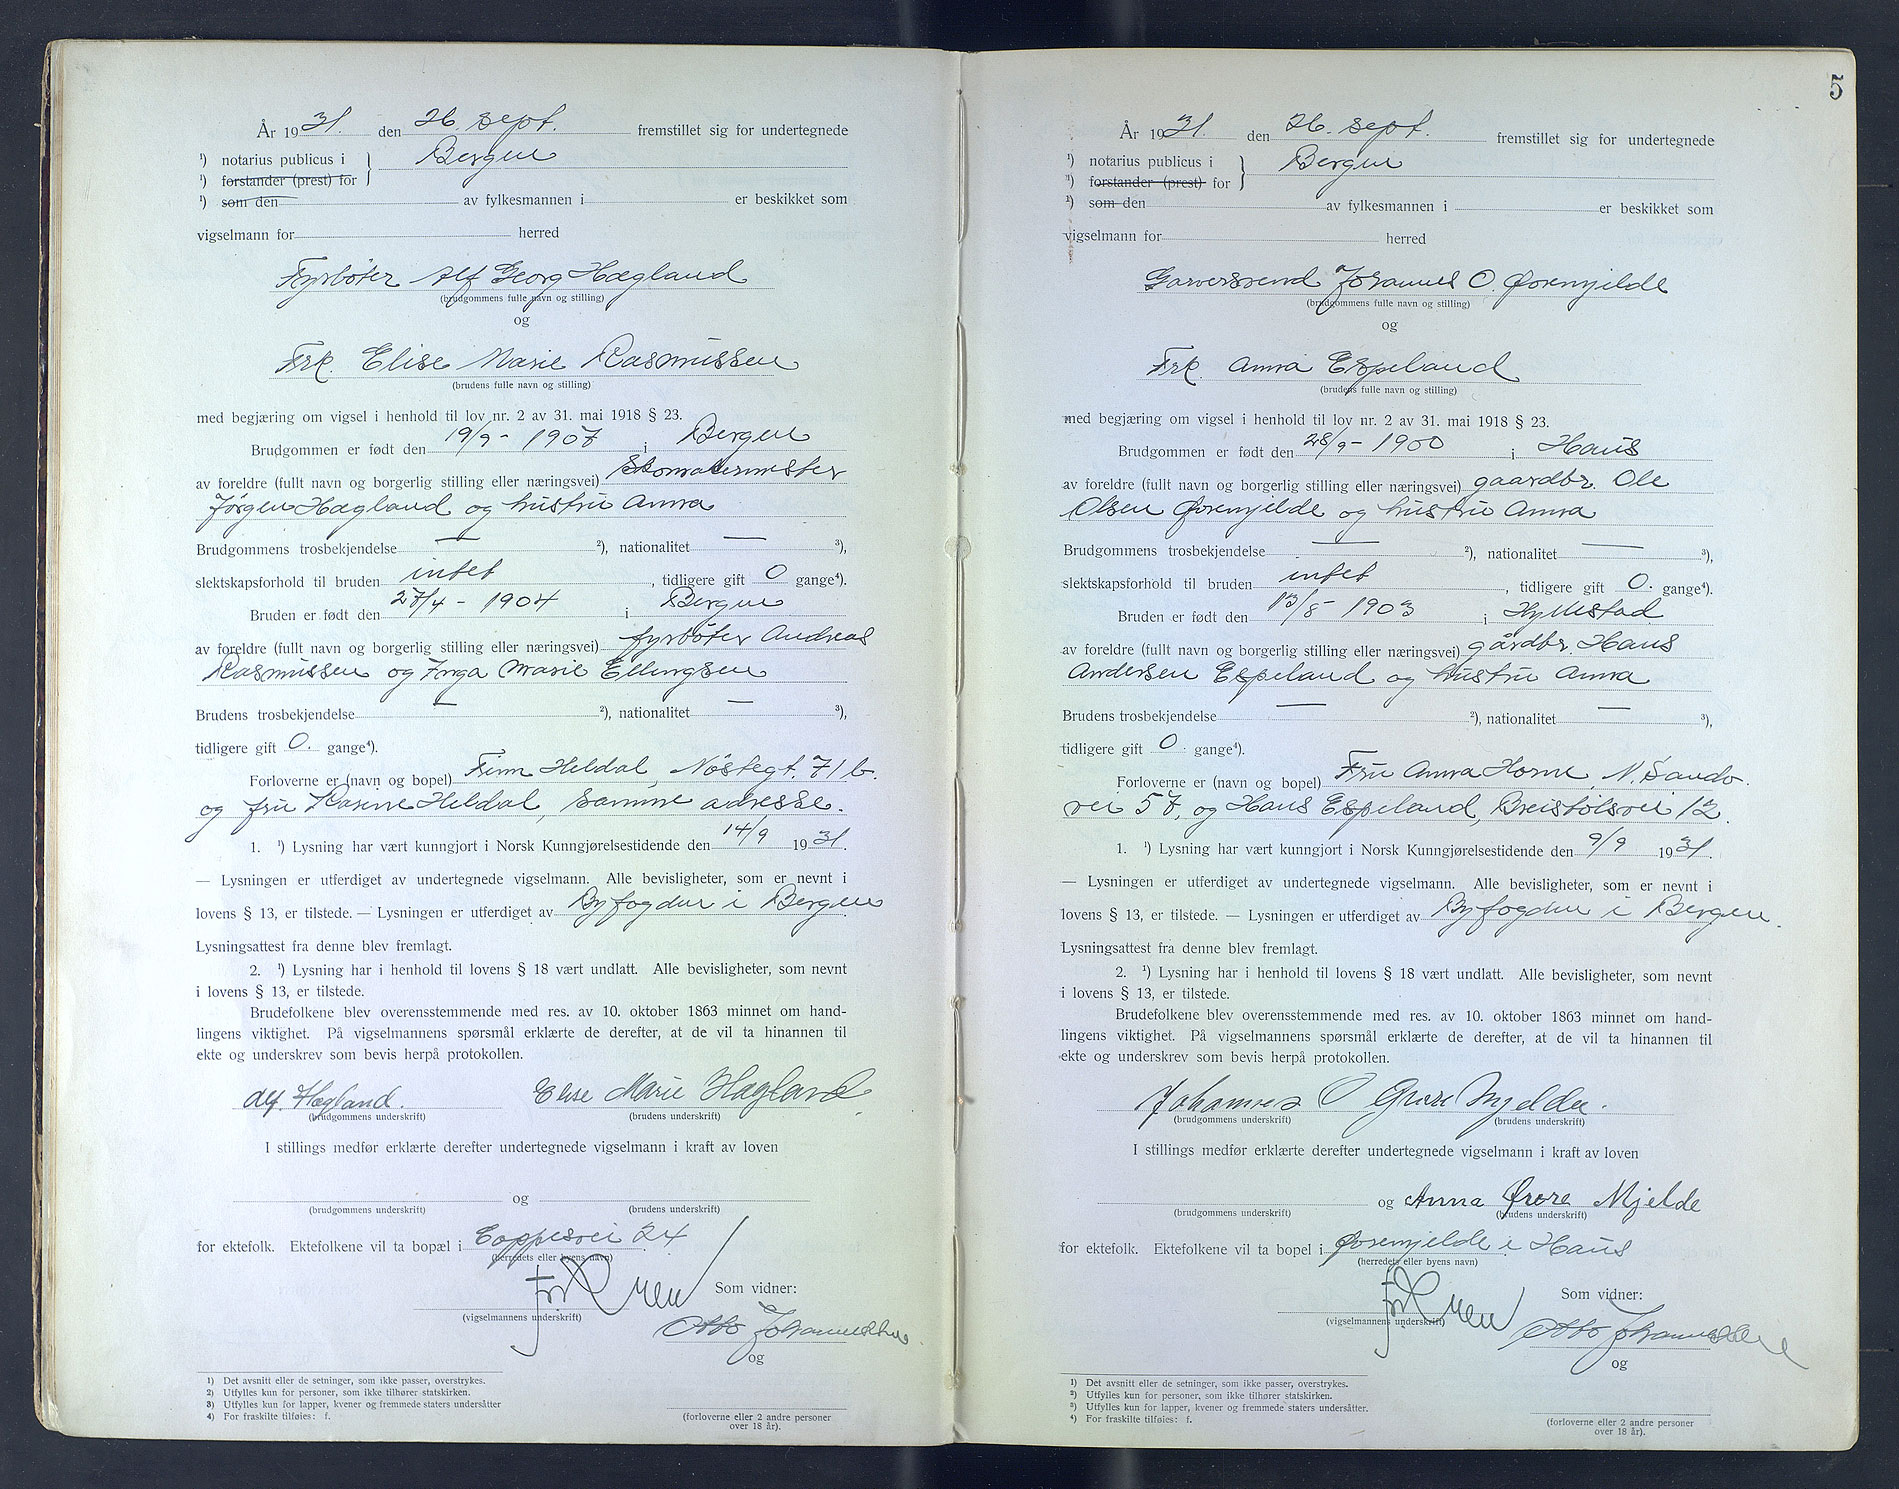 År 1931. den 26. sept. fremstillet sig for undertegnede
¹) notarius publicus i } Bergen
¹) forstander (prest) for
¹) som den av fylkesmannen i er beskikket som
vigselmann for herred
Fyrbøter Alf Georg Hægland
(brudgommens fulle navn og stilling)
og
Frk. Elise Marie Rasmussen
(brudens fulle navn og stilling)
med begjæring om vigsel i henhold til lov nr. 2 av 31. mai 1918 § 23.
Brudgommen er født den 19/9 - 1907 i Bergen
av foreldre (fullt navn og borgerlig stilling eller næringsvei) Skomakermester
Jørgen Hægland og hustru Anna
Brudgommens trosbekjendelse — ²), nationalitet — ³),
slektskapsforhold til bruden intet, tidligere gift 0 gange⁴).
Bruden er født den 27/4 - 1904 i Bergen
av foreldre (fullt navn og borgerlig stilling eller næringsvei) fyrbøter Andreas
Rasmussen og Inga Marie Ellingsen
Brudens trosbekjendelse — ²), nationalitet — ³),
tidligere gift 0. gange⁴).
Forloverne er (navn og bopel) Finn Heldal, Nøstegt. 71 b.
og fru Rasine Heldal, samme adresse.
1. ¹) Lysning har vært kunngjort i Norsk Kunngjørelsestidende den 14/9 1931.
— Lysningen er utferdiget av undertegnede vigselmann. Alle bevisligheter, som er nevnt i
lovens § 13, er tilstede. — Lysningen er utferdiget av Byfogden i Bergen
Lysningsattest fra denne blev fremlagt.
2. ¹) Lysning har i henhold til lovens § 18 vært undlatt. Alle bevisligheter, som nevnt
i lovens § 13, er tilstede.
Brudefolkene blev overensstemmende med res. av 10. oktober 1863 minnet om hand-
lingens viktighet. På vigselmannens spørsmål erklærte de derefter, at de vil ta hinannen til
ekte og underskrev som bevis herpå protokollen.
Alf. Hægland. Elise Marie Hægland.
(brudgommens underskrift) (brudens underskrift)
I stillings medfør erklærte derefter undertegnede vigselmann i kraft av loven
og
(brudgommens underskrift) (brudens underskrift)
for ektefolk. Ektefolkene vil ta bopæl i Eoppesvei 24
(herredets eller byens navn)
Som vidner:
(vigselmannens underskrift)
Otto Johannessen
og
1) Det avsnitt eller de setninger, som ikke passer, overstrykes.
2) Utfylles kun for personer, som ikke tilhører statskirken.
3) Utfylles kun for lapper, kvener og fremmede staters undersåtter
4) For fraskilte tilføies: f.
(forloverne eller 2 andre personer
over 18 år).
5
År 1931. den 26. sept. fremstillet sig for undertegnede
¹) notarius publicus i } Bergen
¹) forstander (prest) for
¹) som den av fylkesmannen i er beskikket som
vigselmann for herred
Garversvend Johannes O. Øvremjelde
(brudgommens fulle navn og stilling)
og
Frk. Anna Espeland
(brudens fulle navn og stilling)
med begjæring om vigsel i henhold til lov nr. 2 av 31. mai 1918 § 23.
Brudgommen er født den 28/9 - 1900 i Haus
av foreldre (fullt navn og borgerlig stilling eller næringsvei) gaardbr. Ole
Olsen Øvremjelde og hustru Anna
Brudgommens trosbekjendelse — ²), nationalitet — ³),
slektskapsforhold til bruden intet, tidligere gift 0. gange⁴).
Bruden er født den 13/8 - 1903 i Hyllestad
av foreldre (fullt navn og borgerlig stilling eller næringsvei) gårdbr. Hans
Andersen Espeland og hustru Anna
Brudens trosbekjendelse — ²), nationalitet — ³),
tidligere gift 0. gange⁴).
Forloverne er (navn og bopel) Fru Anna Horne, N. Sandv.
vei 57, og Hans Espeland, Breistølsvei 12.
1. ¹) Lysning har vært kunngjort i Norsk Kunngjørelsestidende den 9/9 1931.
— Lysningen er utferdiget av undertegnede vigselmann. Alle bevisligheter, som er nevnt i
lovens § 13, er tilstede. — Lysningen er utferdiget av Byfogden i Bergen.
Lysningsattest fra denne blev fremlagt.
2. ¹) Lysning har i henhold til lovens § 18 vært undlatt. Alle bevisligheter, som nevnt
i lovens § 13, er tilstede.
Brudefolkene blev overensstemmende med res. av 10. oktober 1863 minnet om hand-
lingens viktighet. På vigselmannens spørsmål erklærte de derefter, at de vil ta hinannen til
ekte og underskrev som bevis herpå protokollen.
Johannes O Øvre Mjelde.
(brudgommens underskrift) (brudens underskrift)
I stillings medfør erklærte derefter undertegnede vigselmann i kraft av loven
og Anna Øvre Mjelde
(brudgommens underskrift) (brudens underskrift)
for ektefolk. Ektefolkene vil ta bopel i Øvremjelde i Haus
(herredets eller byens navn)
Som vidner:
(vigselmannens underskrift)
Otto Johannessen
og
1) Det avsnitt eller de setninger, som ikke passer, overstrykes.
2) Utfylles kun for personer, som ikke tilhører statskirken.
3) Utfylles kun for lapper, kvener og fremmede staters undersåtter.
4) For fraskilte tilføies: f.
(forloverne eller 2 andre personer
over 18 år).